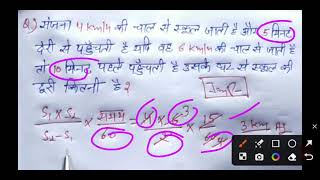 Q) संजना 4 km/h की चाल से स्कूल जाती है और 5 मिनट
देरी से पहुँचती है यदि वह 6 km/h की चाल से जाती है
तो 10 मिनट पहले पहुँचती है उसके घर से स्कूल की
दूरी कितनी है?
S₁ × S₂ / S₂ - S₁ × समय / 60 = 4 × 6 / 2 × 15 / 60 3 km Ans